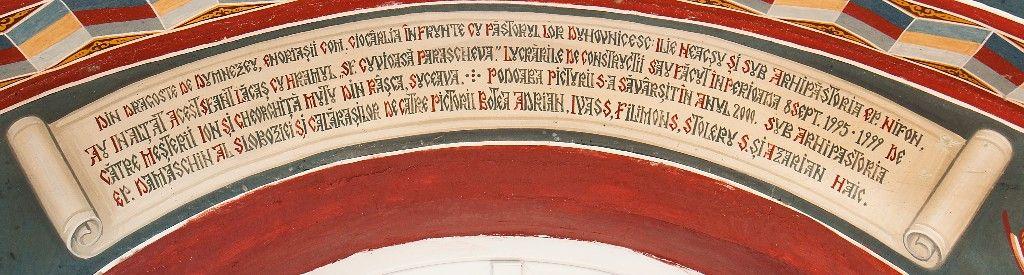 DIN DRAGOSTE DE DUMNEZEU, ENORIAȘII COM. CIOCÂRLIA ÎN FRUNTE CU PĂSTORUL LOR DUHOVNICESC ILIE NEACȘU ȘI SUB ARHIPĂSTORIA EP. NIFON,
AU ÎNĂLȚAT ACEST SFÂNT LĂCAȘ CU HRAMUL „SF. CUVIOASĂ PARASCHEVA.” LUCRĂRILE DE CONSTRUCȚII S-AU FĂCUT ÎN PERIOADA 8 SEPT. 1995 - 1999 DE
CĂTRE MEȘTERII ION ȘI GHEORGHIȚA MUTU DIN RÂȘCA, SUCEAVA. ⁘ PODOABA PICTURII S-A SĂVÂRȘIT ÎN ANUL 2000, SUB ARHIPĂSTORIA
EP. DAMASCHIN AL SLOBOZIEI ȘI CĂLĂRAȘILOR DE CĂTRE PICTORII BOTEA ADRIAN, IVAS S, FILIMON S, STOLERU S ȘI AZARIAN HAIC.